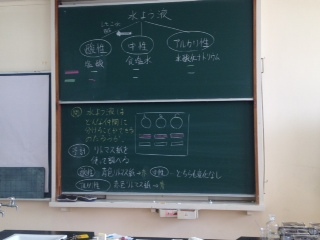 水よう液
酸性 中性 アルカリ性
塩酸 食塩水 水酸化ナトリウム
問 水よう液は
どんな仲間に
分けることができる
のだろうか。
実験 リトマス紙を
使って調べる
酸性 青色リトマス紙→赤 中性 どちらも変化なし
アルカリ性 赤色リトマス紙→青